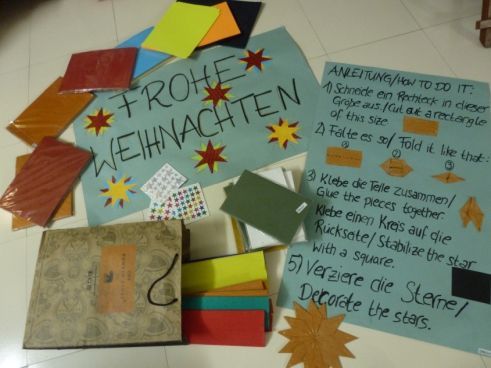 FROHE
WEIHNACHTEN
ANLEITUNG/HOW TO DO IT:
1) Schneide ein Rechteck in dieser
Größe aus/Cut out a rectangle
of this size
2) Falte es so/Fold it like that:
1 2 3
3) Klebe die Teile zusammen/
Glue the pieces together.
Klebe einen Kreis auf die
Rückseite/Stabilize the star
with a square.
5) Verziere die Sterne/
Decorate the stars.